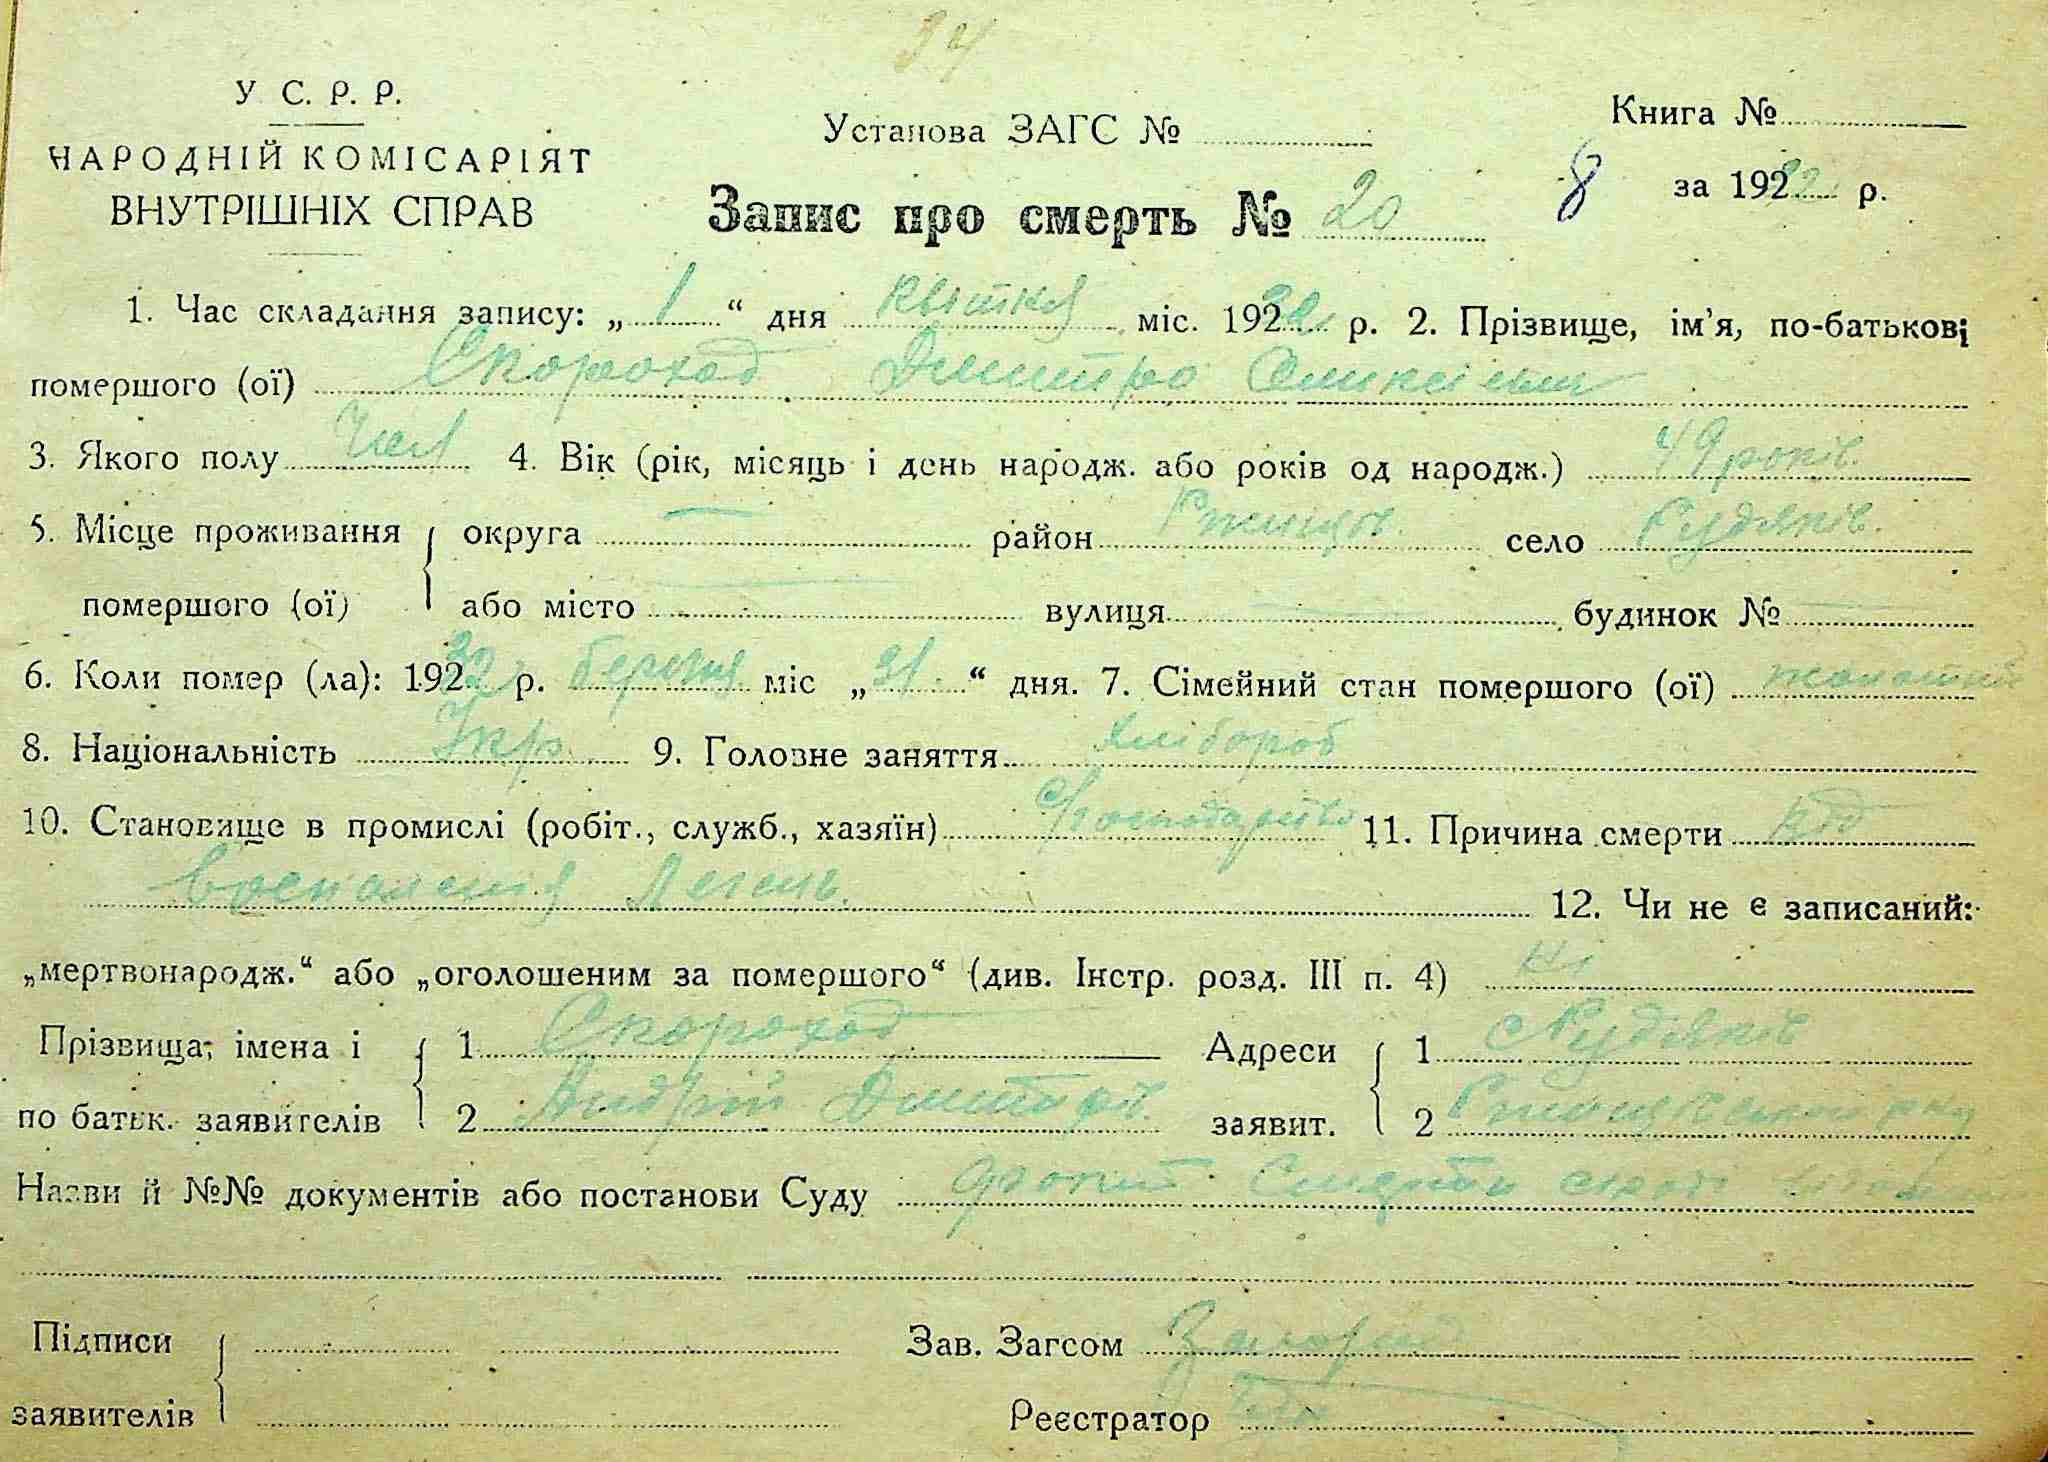 34
У С. Р. Р.
НАРОДНІЙ КОМІСАРІЯТ
ВНУТРІШНІХ СПРАВ
Установа ЗАГС №
Книга №
Запис про смерть № 20
8 за 1932 р.
1. Час складання запису: „ 1 “ дня квітня міс. 1932 р. 2. Прізвище, ім’я, по-батькові
помершого (ої) Скороход Дмитро
3. Якого полу Чол 4. Вік (рік, місяць і день народж. або років од народж.) 49 років.
5. Місце проживання округа — район Ржищів село Гудяків.
помершого (ої) або місто вулиця будинок №
6. Коли помер (ла): 1932 р. березня міс „ 31 “ дня. 7. Сімейний стан помершого (ої) жонатий
8. Національність Укр. 9. Головне заняття Хлібороб
10. Становище в промислі (робіт., служб., хазяїн) с/господарство 11. Причина смерти від
воспаления Легень. 12. Чи не є записаний:
„мертвонародж.“ або „оголошеним за помершого“ (див. Інстр. розд. III п. 4) ні
Прізвища, імена і 1 Скороход Адреси 1
по батьк. заявителів 2 Андрій Дмитров. заявит. 2
Назви й №№ документів або постанови Суду Смерти
Підписи Зав. Загсом
заявителів Реєстратор